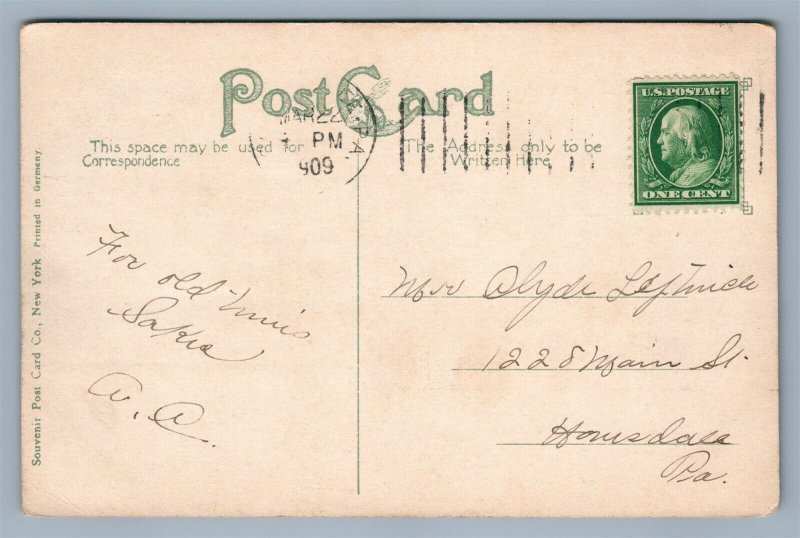 Post Card
MAR 22
PM
909
E. PA.
This space may be used for
Correspondence
The Address only to be
Written Here
U.S. POSTAGE
ONE CENT
Souvenir Post Card Co., New York Printed in Germany.
For old times
Sake
A. A.
Mr Clyde Leftwich
1228 Main St.
Honesdale
Pa.